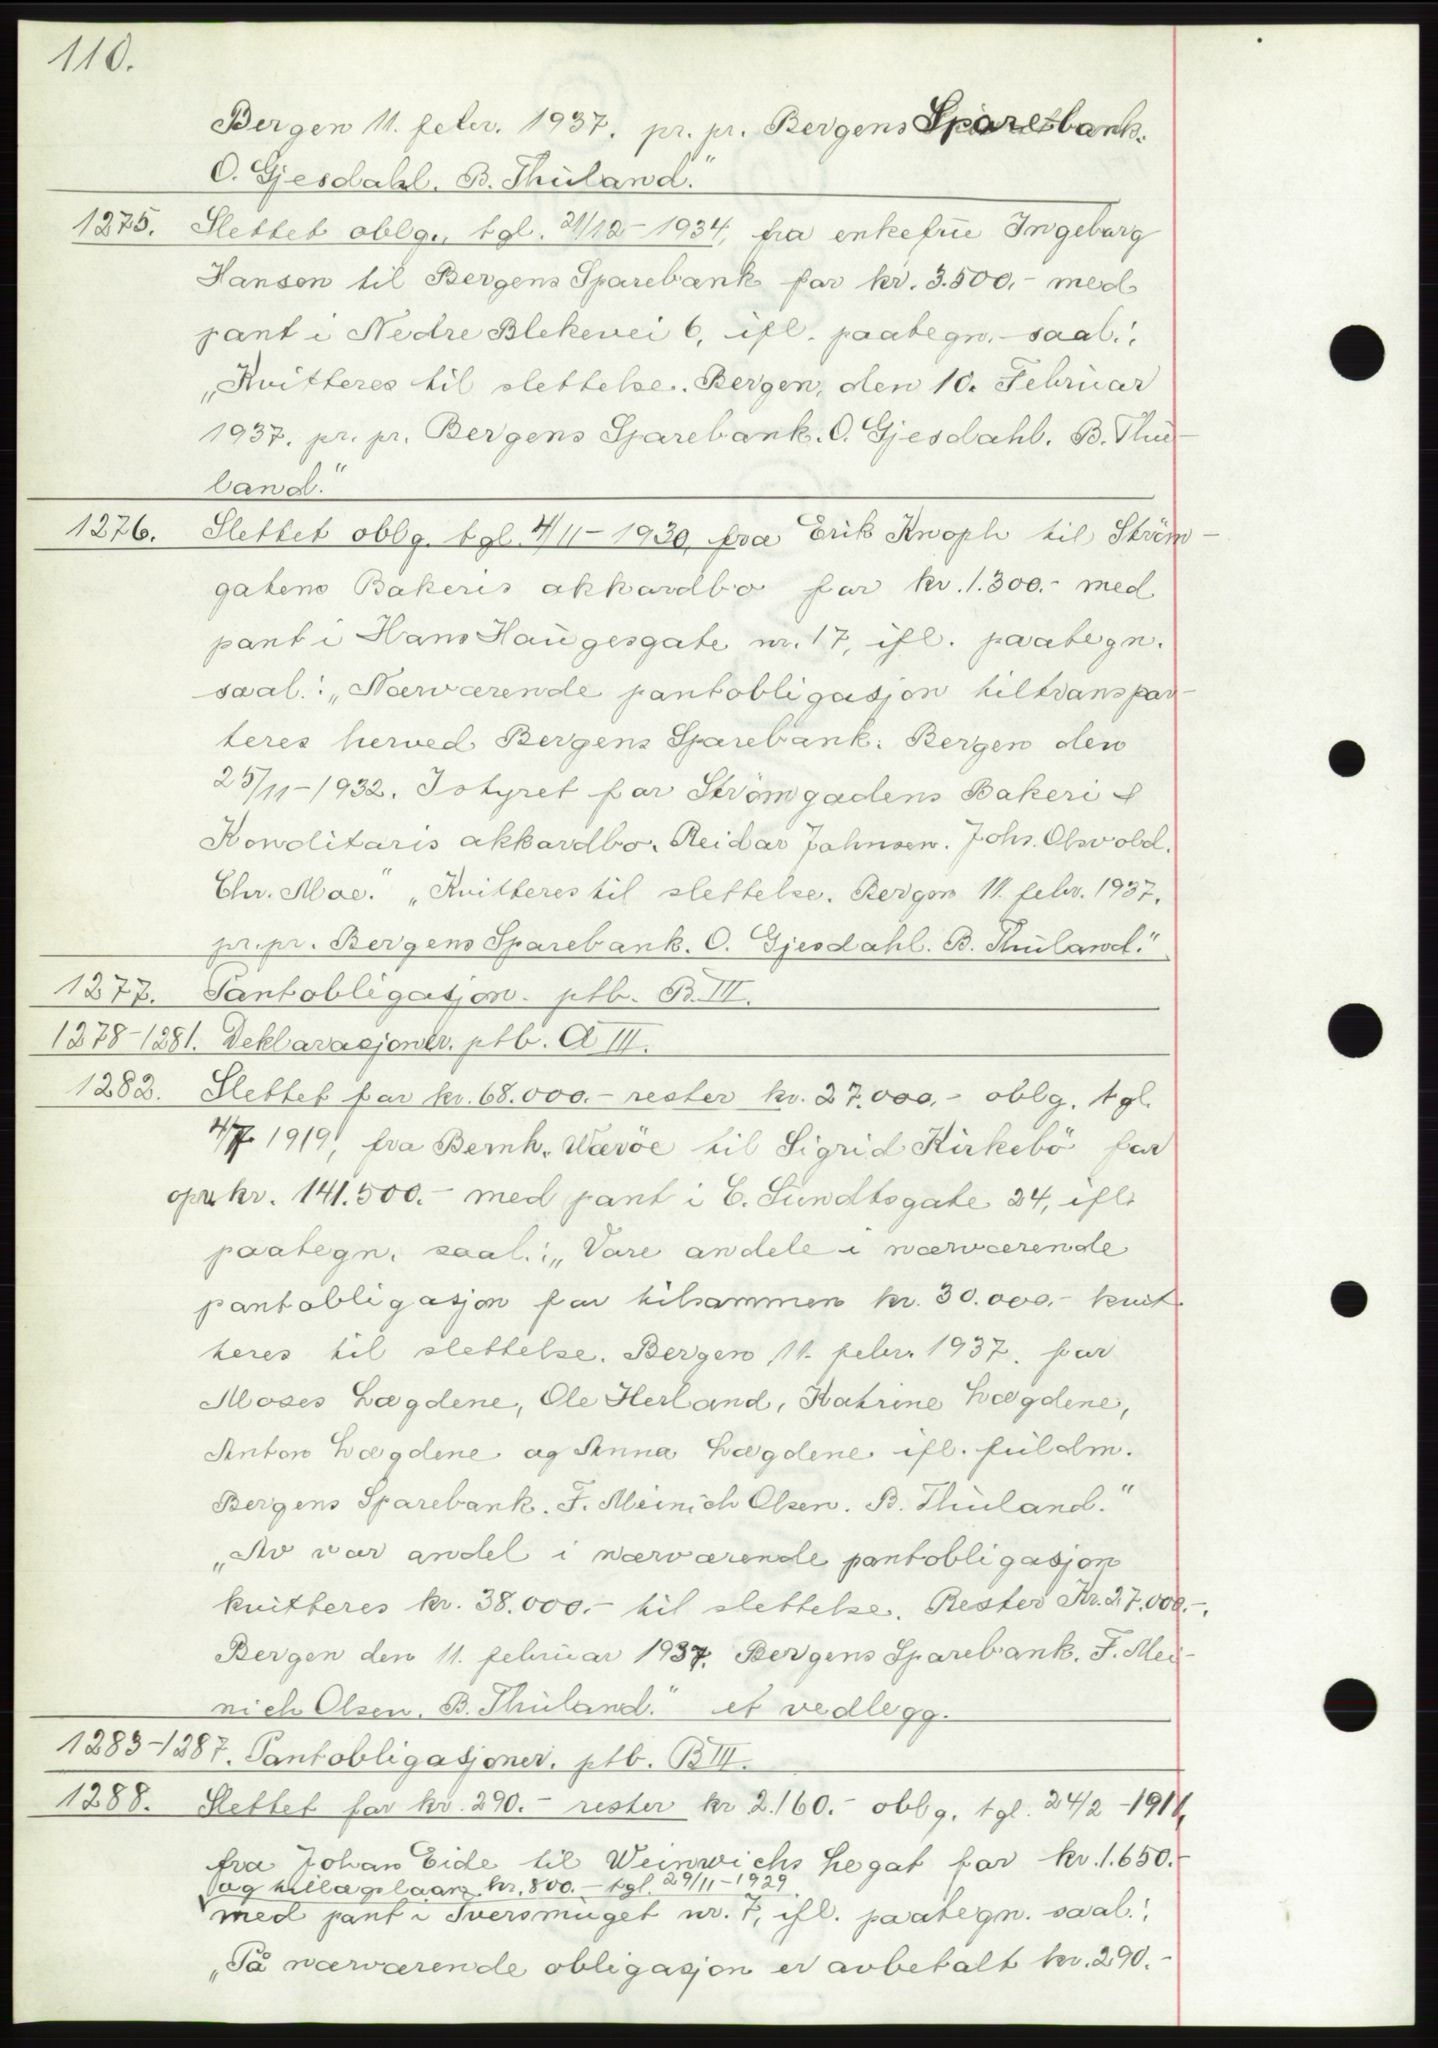 110.
Bergen 11. febr. 1937. pr. pr. Bergens Sparebank.
O. Gjesdahl. B. Thuland."
1275. Slettet oblg., tgl. 21/12-1934, fra enkefrue Ingeborg
Hansen til Bergens Sparebank for kr. 3.500.- med
pant i Nedre Blekevei 6, ifl. paategn. saal.:
„Kvitteres til slettelse. Bergen, den 10. Februar
1937. pr. pr. Bergens Sparebank. O. Gjesdahl. B. Thu-
land."
1276. Slettet oblg. tgl. 4/11-1930, fra Erik Knoph til Ström-
gatens Bakeris akkordbo for kr. 1.300.- med
pant i Hans Haugesgate nr. 17, ifl. paategn.
saal.: „Nærværende pantobligasjon tiltranspor-
teres herved Bergens Sparebank. Bergen den
25/11-1932. I styret for Strömgadens Bakeri &
Konditoris akkordbo. Reidar Johnsen. Johs. Olsvold.
Chr. Moe." „Kvitteres til slettelse. Bergen 11. febr. 1937.
pr. pr. Bergens Sparebank. O. Gjesdahl. B. Thuland."
1277. Pantobligasjon. ptb. B III.
1278-1281. Deklarasjoner. ptb. A III.
1282. Slettet for kr. 68.000.- rester kr. 27.000.- oblg. tgl.
4/7 1919, fra Bernh. Væröe til Sigrid Kirkebö for
opr. kr. 141.500.- med pant i C. Sundtsgate 24, ifl.
paategn. saal.: „Vore andele i nærværende
pantobligasjon for tilsammen kr. 30.000.- kvit-
teres til slettelse. Bergen 11. febr. 1937. for
Moses Lægdene, Ole Herland, Katrine Lægdene,
Anton Lægdene og Anna Lægdene ifl. fuldm.
Bergens Sparebank. F. Meinich Olsen. B. Thuland."
„Av vor andel i nærværende pantobligasjon
kvitteres kr. 38.000.- til slettelse. Rester Kr. 27.000.-.
Bergen den 11. februar 1937. Bergens Sparebank. F. Mei-
nich Olsen. B. Thuland." et vedlegg.
1283-1287. Pantobligasjoner. ptb. B III.
1288. Slettet for kr. 290.- rester kr 2.160.- oblg. tgl. 24/2-1911,
fra Johan Eide til Weinwichs Legat for kr. 1.650.-
og tillægslaan kr. 800.- tgl. 29/11-1929
med pant i Iversmuget nr. 7, ifl. paategn. saal.:
„På nærværende obligasjon er avbetalt kr. 290.-